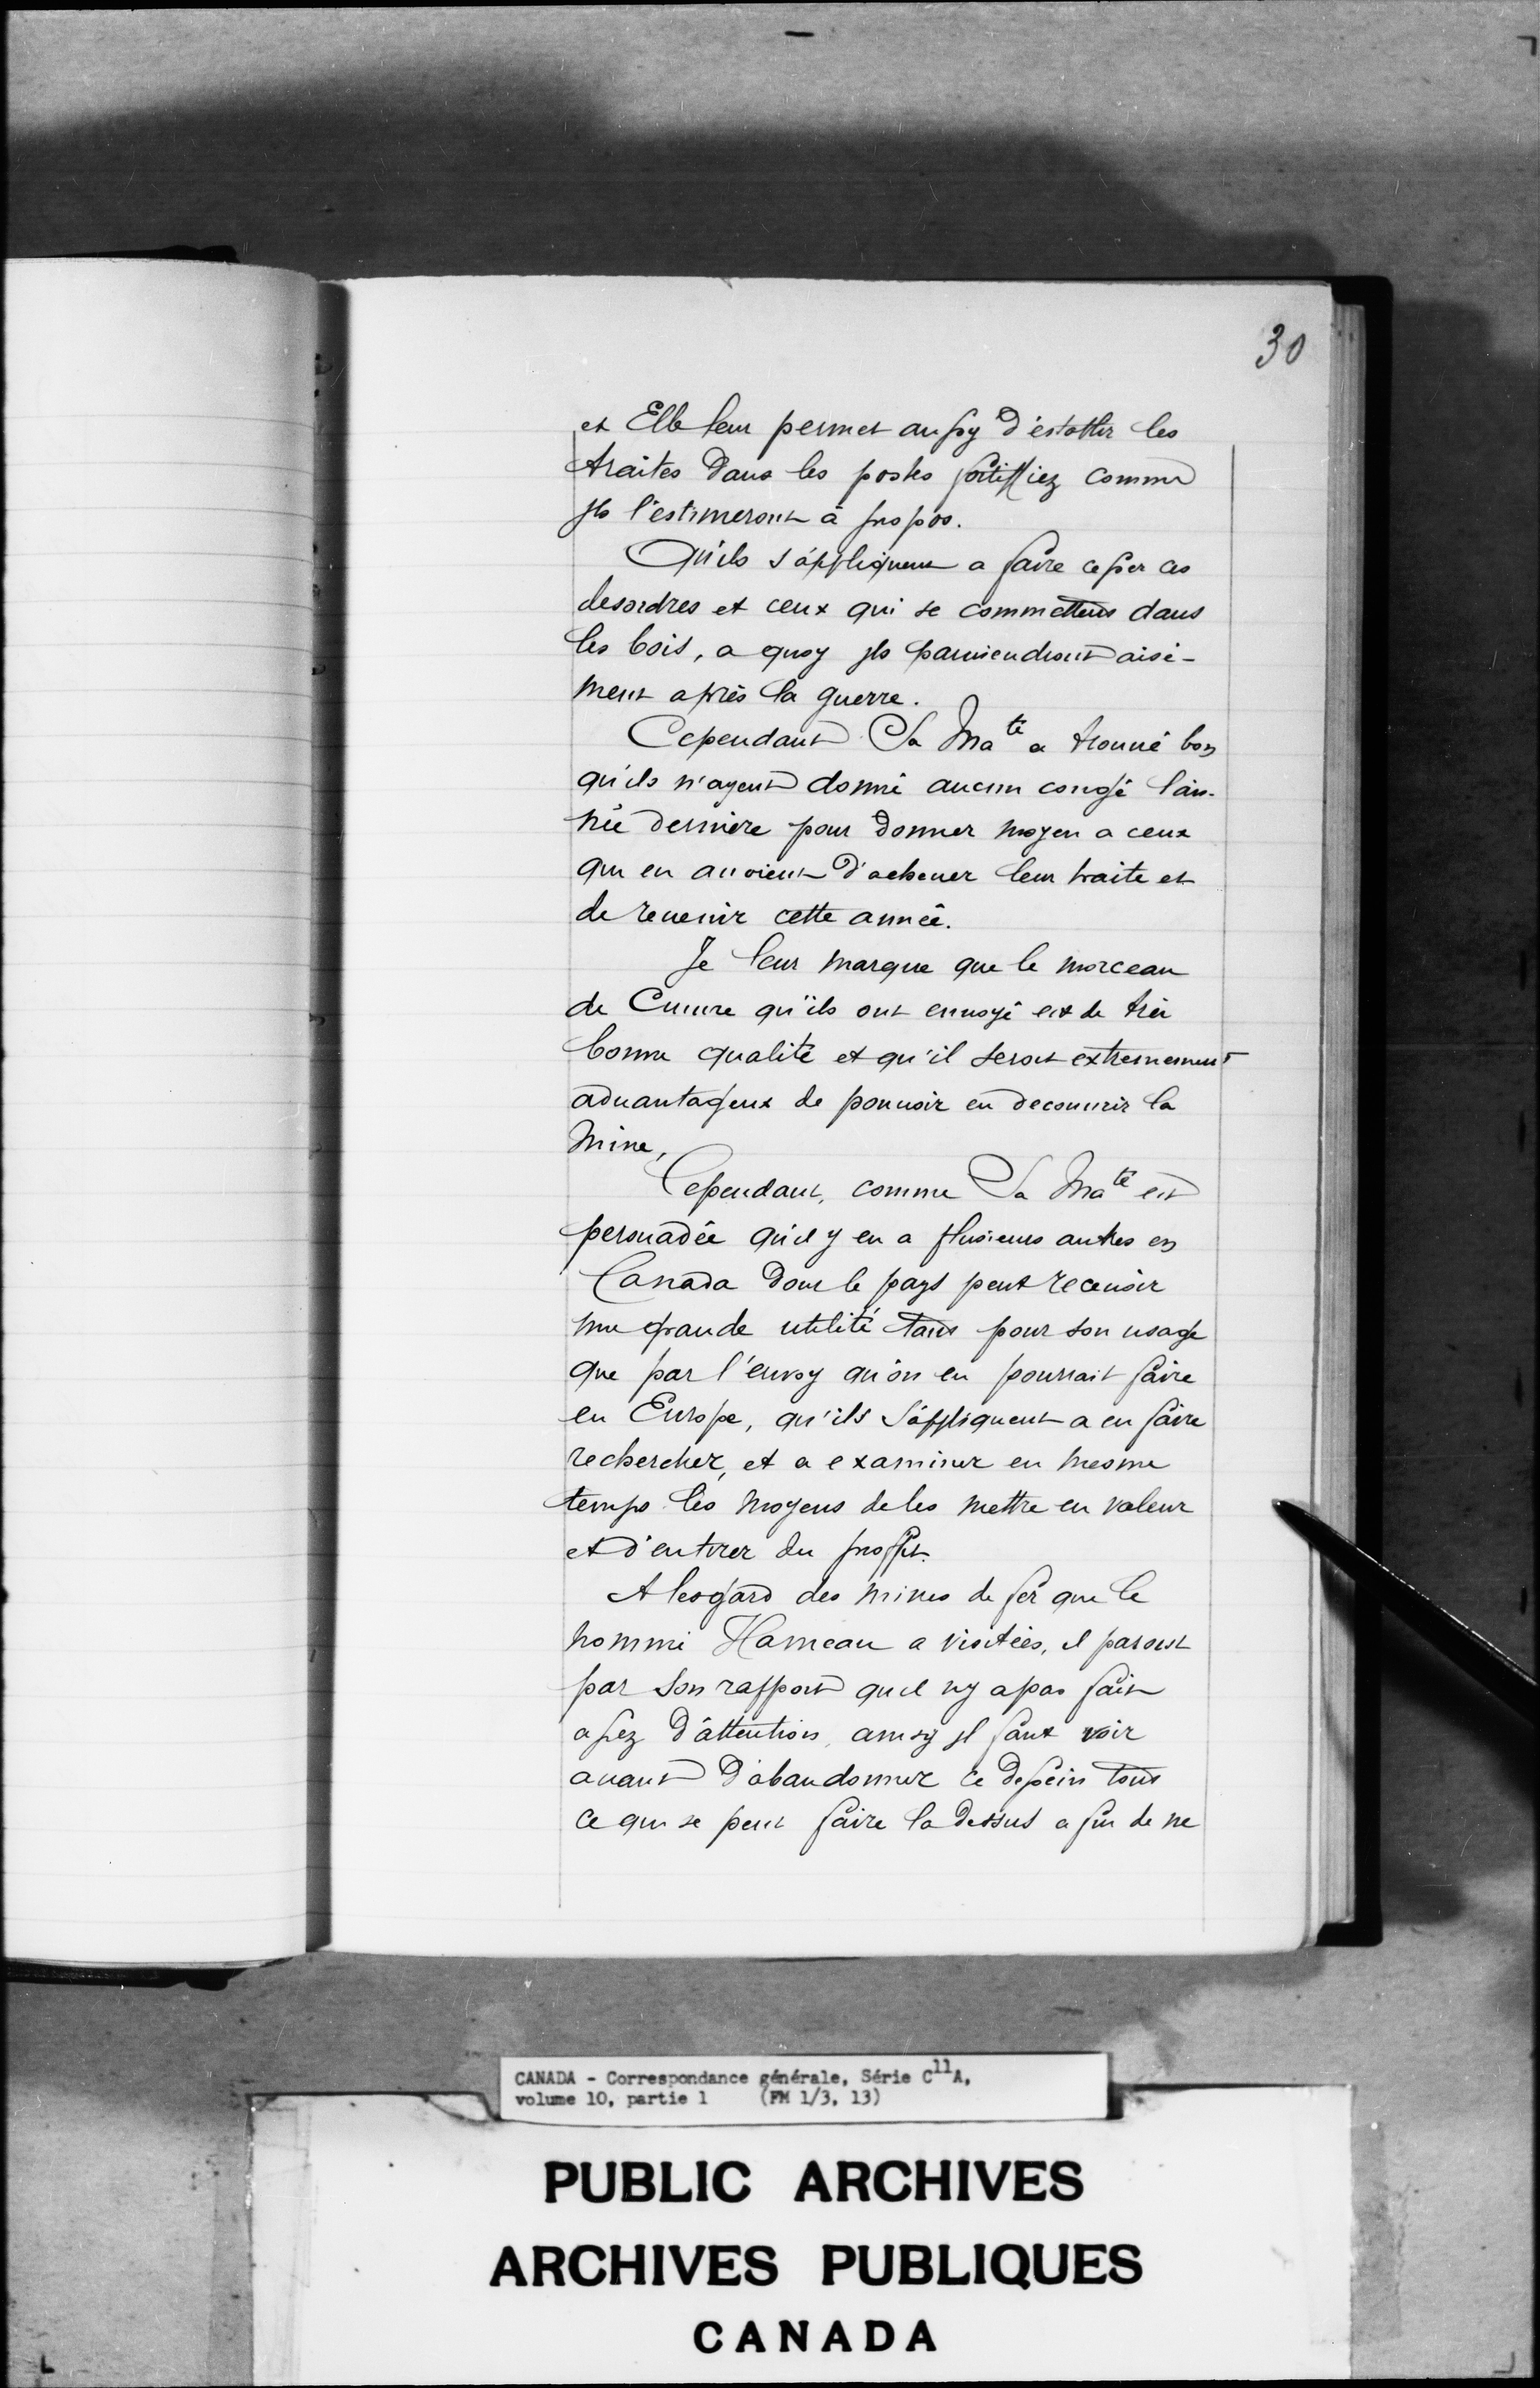 30
et Elle leur permet aussy d'establir les
traites dans les postes fortiffiez comme
jls l'estimeront à propos.
Qu'ils s'appliquent a faire cesser ces
desordres et ceux qui se commettent dans
les bois, a quoy jls paruiendront aisé-
ment après la guerre.
Cependant Sa Ma^té a trouué bon
qu'ils n'ayent donné aucun congé l'an-
née derniere pour donner moyen a ceux
qui en auoient d'acheuer leur traite et
de reuenir cette année.
Je leur marque que le morceau
de Cuiure qu'ils ont enuoyé est de très
bonne qualité et qu'il seroit extremement
aduantageux de pouuoir en decouurir la
mine,
Cependant, comme Sa Ma^té est
persuadée qu'il y en a plusieurs autres en
Canada dont le pays peut receuoir
une grande utilité tant pour son usage
que par l'envoy qu'on en pourrait faire
en Europe, qu'ils s'appliquent a en faire
rechercher, et a examiner en mesme
temps les moyens de les mettre en valeur
et d'en tirer du proffit.
A lesgard des mines de fer que le
nommé Hameau a visitées, il paroist
par son rapport qu'il n'y a pas fait
assez d'attention, ainsy jl faut voir
auant d'abandonner ce dessein tout
ce qui se peut faire la dessus a fin de ne
CANADA - Correspondance générale, Série C^11 A,
volume 10, partie 1 (FM 1/3, 13)
PUBLIC ARCHIVES
ARCHIVES PUBLIQUES
CANADA